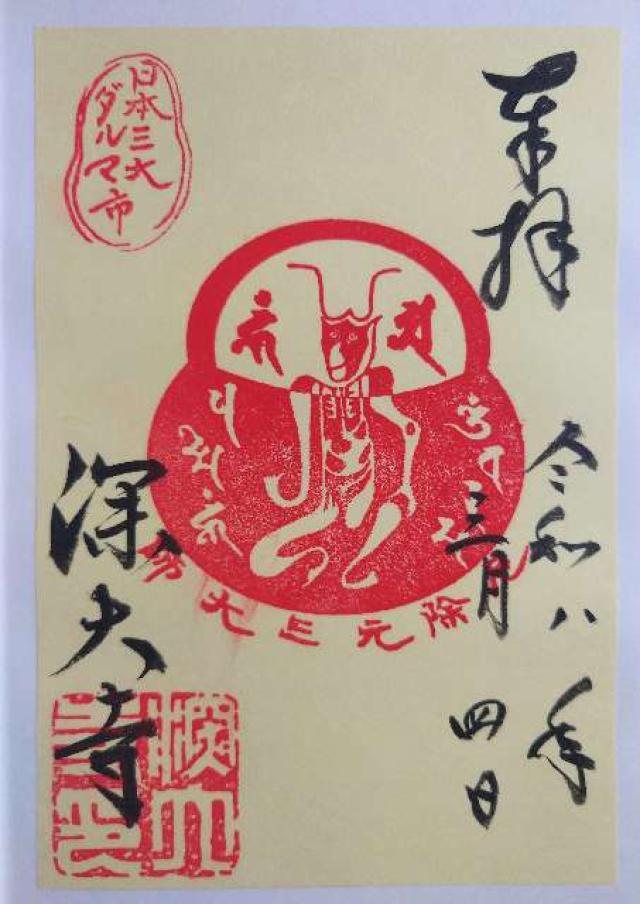 奉拝
令和八年
三月四日
日本三大
ダルマ市
厄除元三大師
深大寺
深大寺印